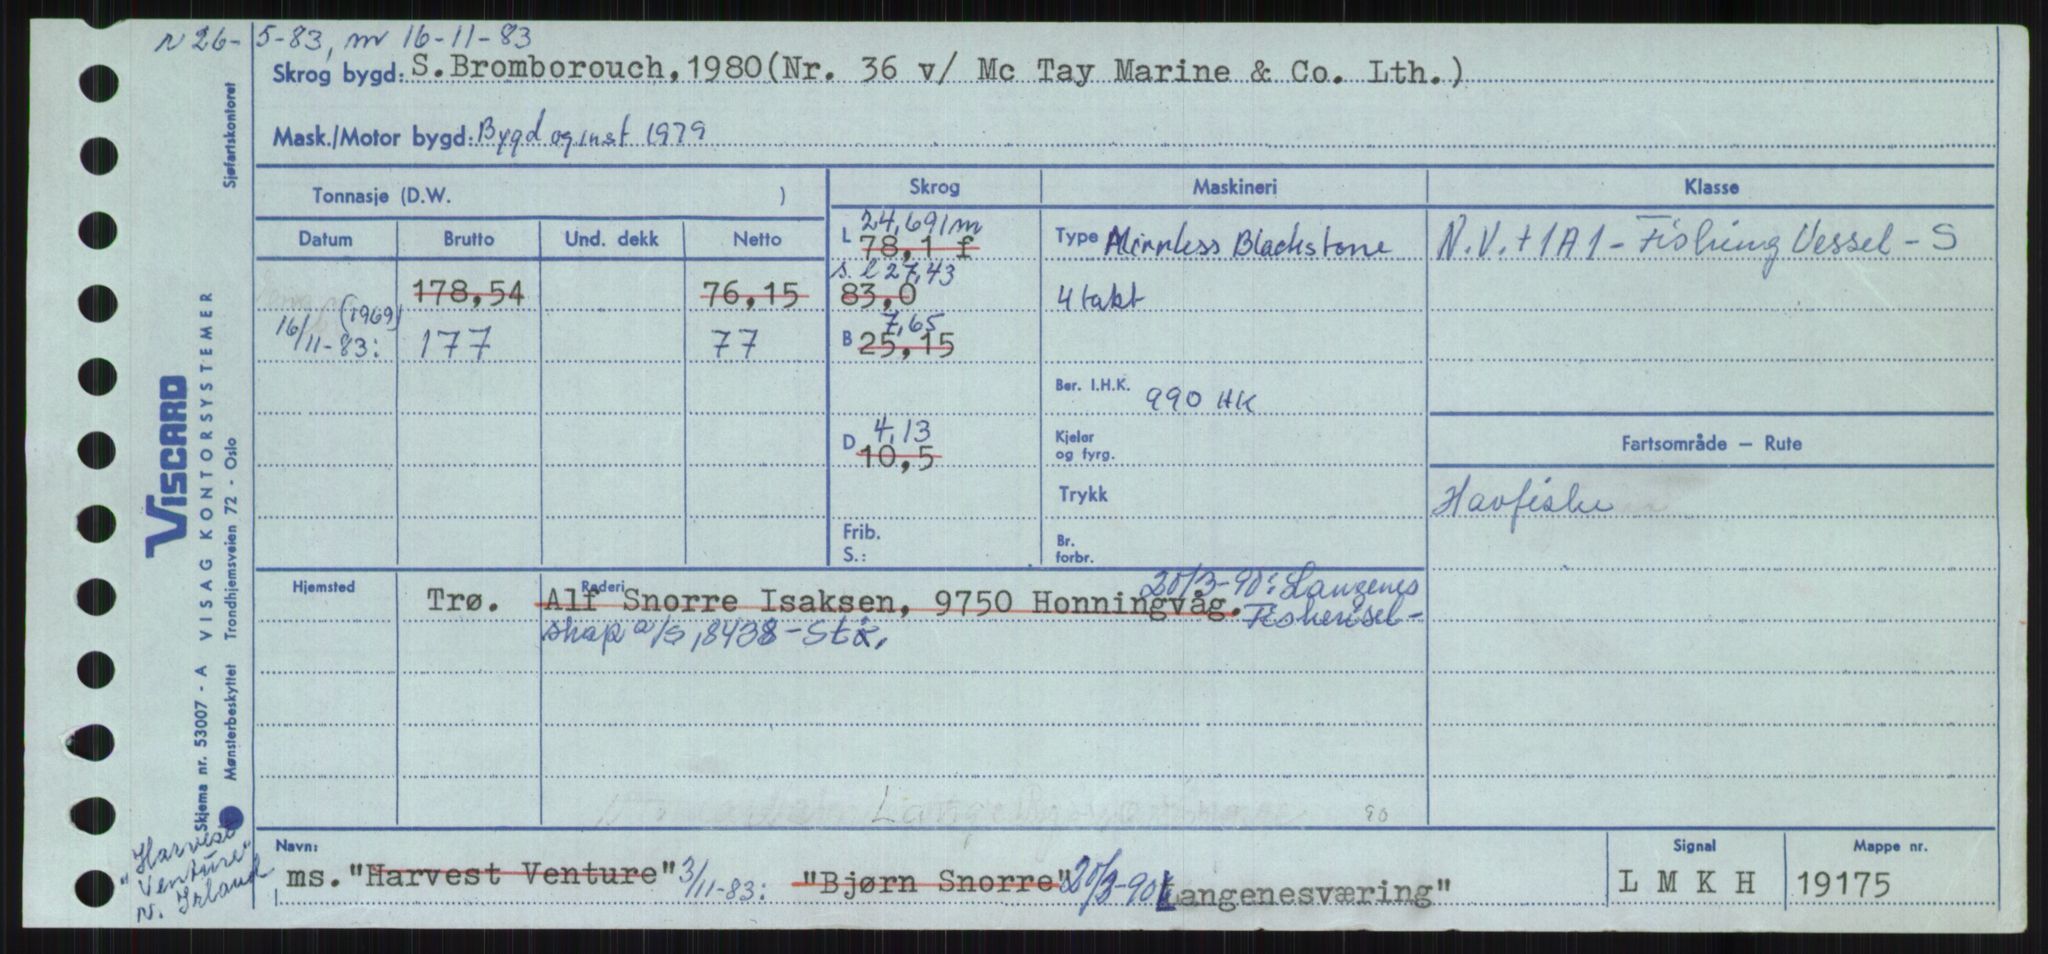 N 26-5-83, M 16-11-83
Skrog bygd: S.Bromborouch,1980(Nr. 36 v/ Mc Tay Marine & Co. Lth.)
Mask./Motor bygd: Bygd og inst 1979
Sjøfartskontoret
Tonnasje (D.W. )
Skrog
Maskineri
Klasse
Datum Brutto Und. dekk Netto
L 24,691 m
78,1 f
s.l 27,43
83,0
178,54 76,15
16/11-83: (1969) 177 77
B 7,65
25,15
D 4,13
10,5
Frib.
S.:
Type Mirrless Blackstone
4 takt
Ber. I.H.K. 990 HK
Kjeler
og fyrg.
Trykk
Br.
forbr.
N.V. + 1A1 - Fishing Vessel - S
Fartsområde — Rute
Havfiske
VISCARD
VISAG KONTORSYSTEMER
Skjema nr. 53007 - A
Mønsterbeskyttet Trondhjemsveien 72 - Oslo
Hjemsted Rederi
Trø. Alf Snorre Isaksen, 9750 Honningvåg. 20/3-90: Langenes
Fiskerisel-
skap a/s, 8438 - Stø.
90
"Harvest
Venture"
N. Irland
Navn:
ms. "Harvest Venture" 3/11-83: "Bjørn Snorre" 20/3-90 Langenesværing"
Signal
L M K H
Mappe nr.
19175